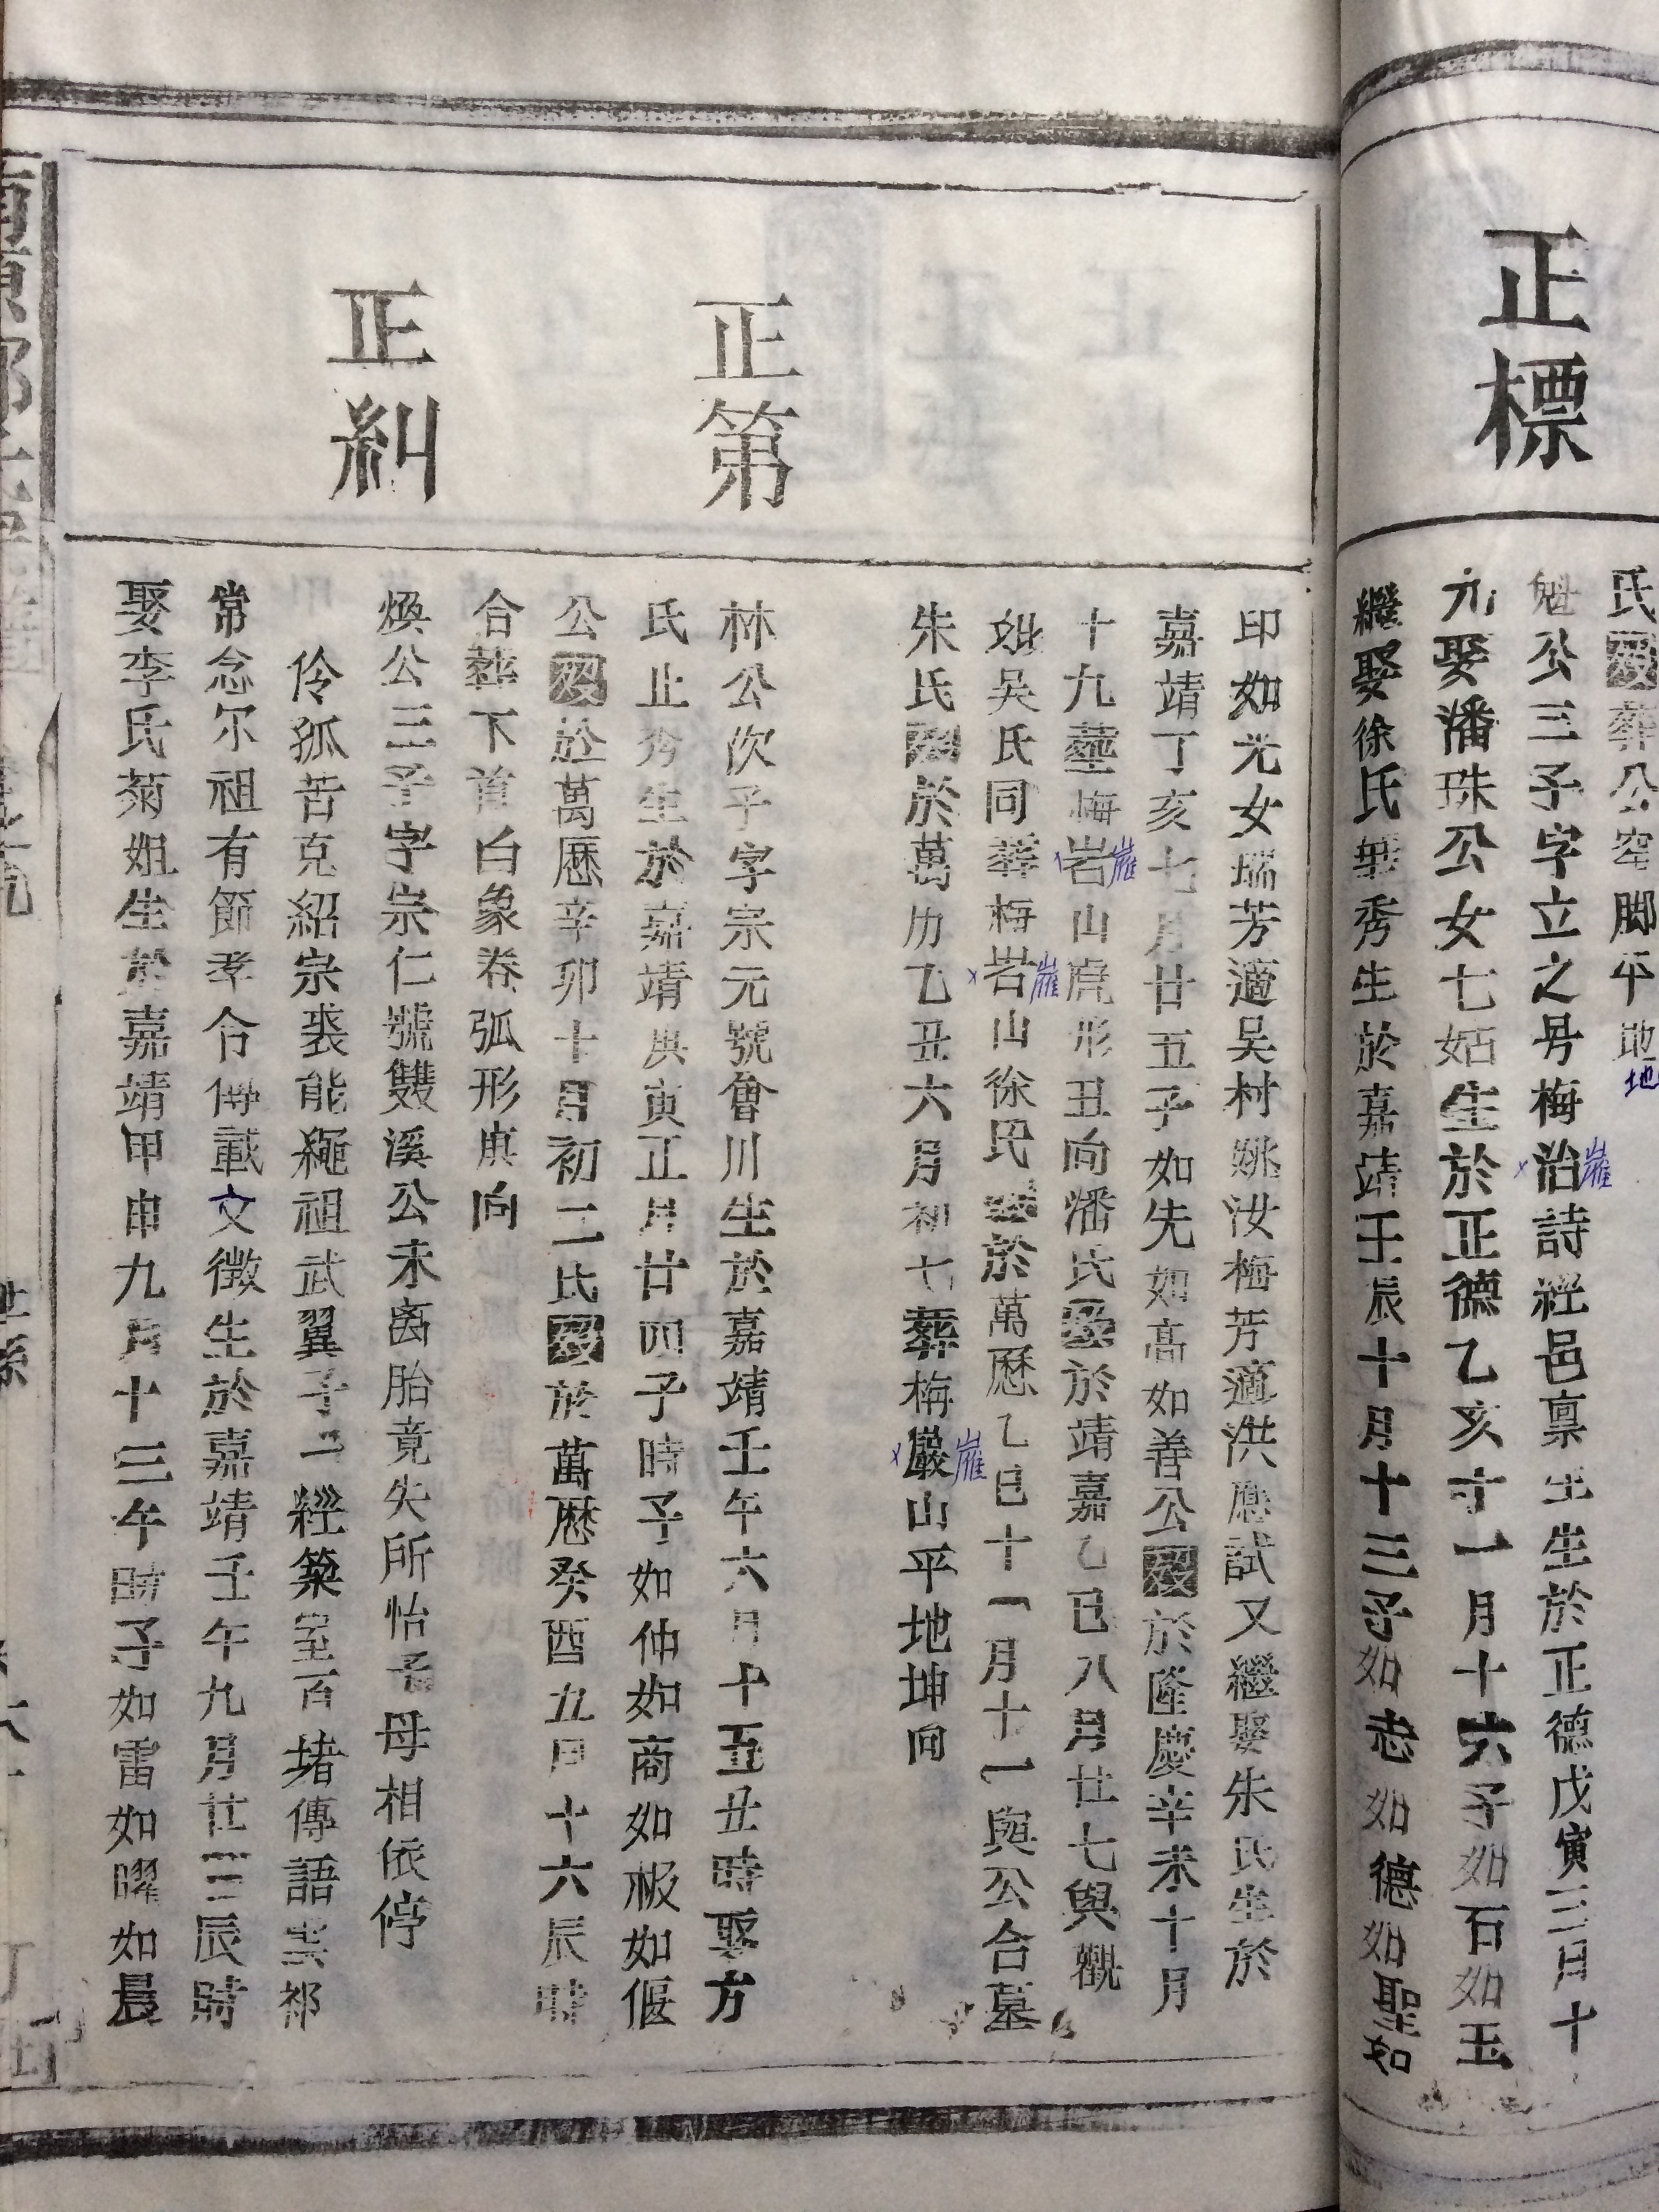 正標
氏歿葬公窀脚平地
地
魁公三子字立之号梅治詩經邑禀生生於正德戊寅三月十
崖
九娶潘珠公女七姑生於正德乙亥十一月十六子如石如玉
繼娶徐氏華秀生於嘉靖壬辰十月十三子如志如德如聖如
印如光女瑞芳適吴村姚汝梅芳適洪應試又繼娶朱氏生於
嘉靖丁亥七月廿五子如先如高如善公歿於隆慶辛未十月
十九葬梅岩山虎形丑向潘氏歿於靖嘉乙巳八月廿七與觀
崖
妣吴氏同葬梅岩山徐氏歿於萬曆乙巳十一月十一與公合墓
崖
朱氏歿於萬历乙丑六月初七葬梅巖山平地坤向
崖
正第
林公次子字宗元號會川生於嘉靖壬午六月十五丑時娶方
氏止秀生於嘉靖庚寅正月廿四子時子如仲如商如极如偃
公歿於萬曆辛卯十月初二氏歿於萬曆癸酉五月十六辰時
合葬下首白象卷狐形庚向
正糾
煥公三子字宗仁號雙溪公未离胎竟失所怡予母相依停
伶狐苦克紹宗裘能繩祖武翼子一經築室百堵傳語雲祁
常念尔祖有節孝令傳載文徵生於嘉靖壬午九月廿三辰時
娶李氏菊姐生於嘉靖甲申九月十三午時子如雷如曜如晨
世系